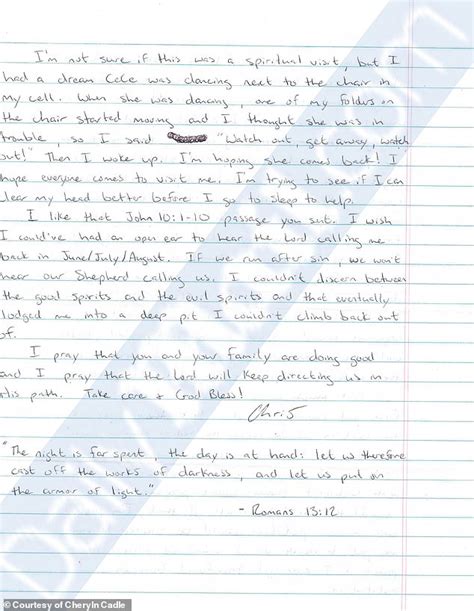 I'm not sure if this was a spiritual visit, but I
had a dream CeCe was dancing next to the chair in
my cell. When she was dancing, one of my folders on
the chair started moving and I thought she was in
trouble, so I said "Watch out, get away, watch
out!" Then I woke up. I'm hoping she comes back! I
hope everyone comes to visit me. I'm trying to see if I can
clear my head better before I go to sleep to help.
I like that John 10:1-10 passage you sent. I wish
I could've had an open ear to hear the Lord calling me
back in June/July/August. If we run after sin, we won't
hear our Shepherd calling us. I couldn't discern between
the good spirits and the evil spirits and that eventually
lodged me into a deep pit I couldn't climb back out
of.
I pray that you and your family are doing good
and I pray that the Lord will keep directing us in
His path. Take care + God Bless!
Chris
"The night is far spent, the day is at hand: let us therefore
cast off the works of darkness, and let us put on
the armor of light."
- Romans 13:12
© Courtesy of Cheryln Cadle